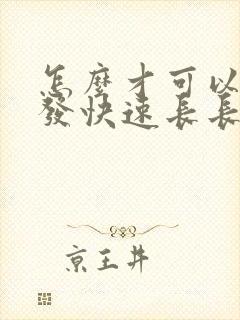 怎麼才可以
發快速長長
京王井